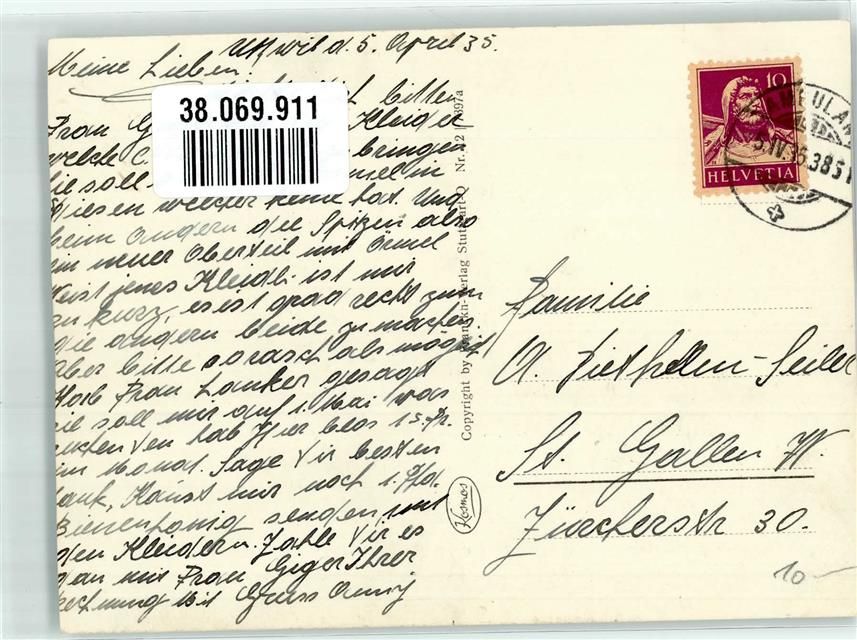 Uttwil d. 5. April 35.
Meine Lieben
bitten
Frau G Kleider
welche bringen
sie soll Ärmel in
diesen welcher keine hat. Und
beim andern die Spitzen also
ein neuer Oberteil mit Ärmel
weist jenes Kleidli ist mir
zu kurz, es ist grad recht zum
die andern beide zu machen
Aber bitte so rasch als möglich
Hab Frau Lanker gesagt
sie soll mir auf 1. Mai was
suchen den hab hier blos 15.Fr.
im Monat. Sage Dir besten
Dank, Kanst mir noch 1. Pfd.
Bienenhonig senden mit
den Kleidern. Zahle Dir es
dan mit Frau Giger Ihrer
Rechnung Mit Gruss Anny
38.069.911
Copyright by Verlag Stuttgart-O Nr.
Kosmos
10
HELVETIA
AMBULANT
Familie
A. Diethelm-Seiler
St. Gallen W.
Zürcherstr 30.
10-